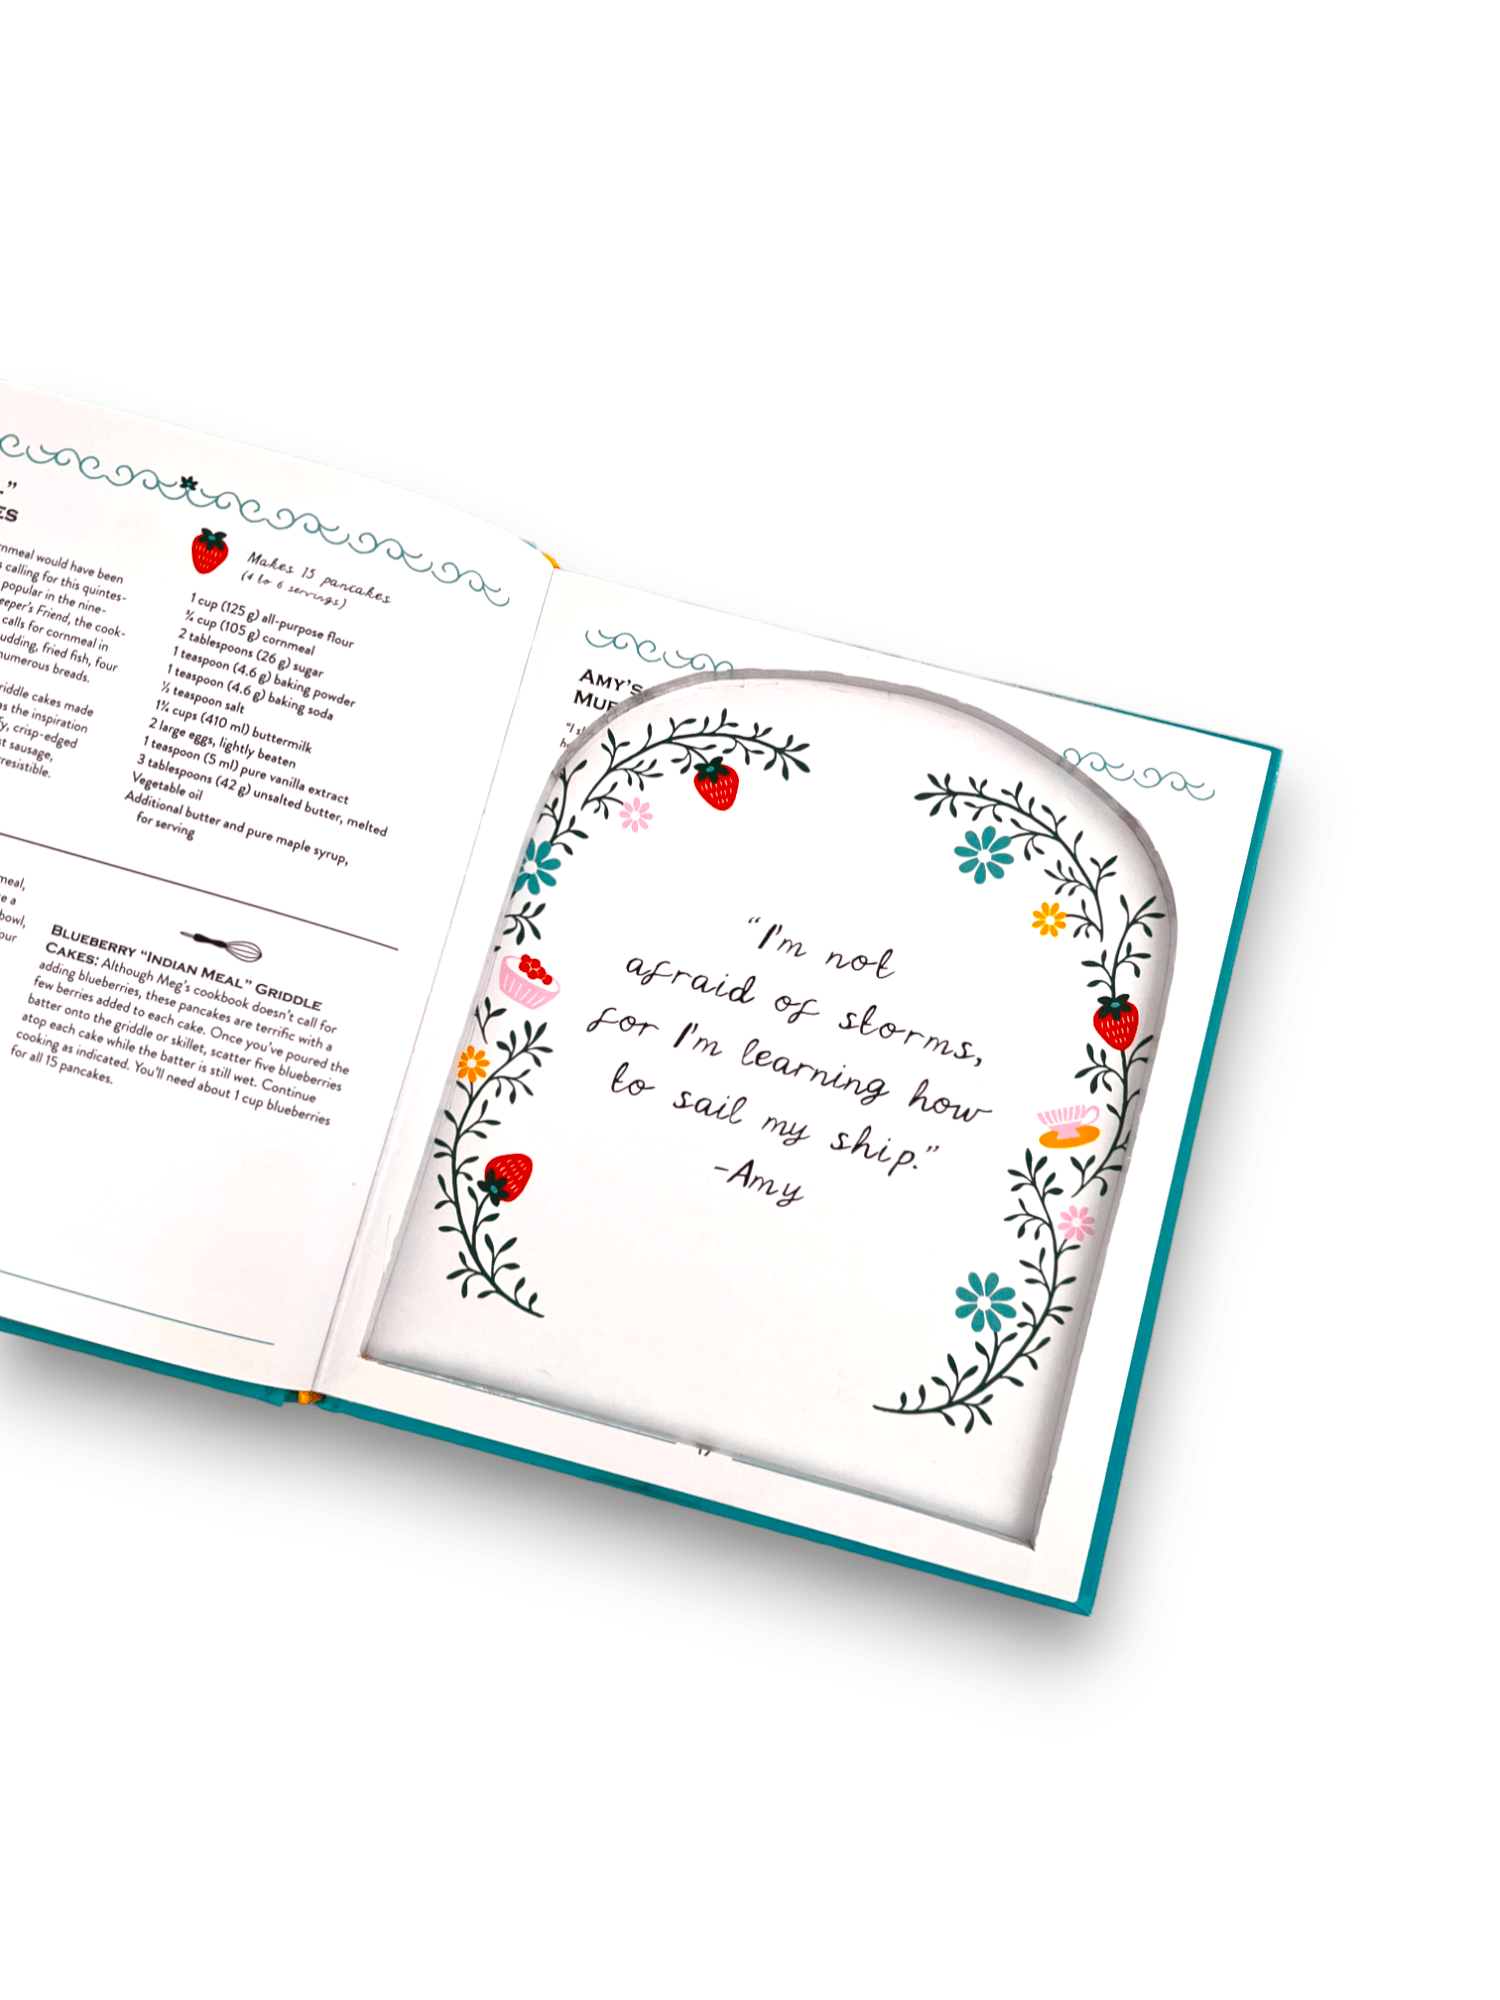 .”
ES
rnmeal would have been
s calling for this quintes-
popular in the nine-
eeper's Friend, the cook-
calls for cornmeal in
udding, fried fish, four
numerous breads.
riddle cakes made
as the inspiration
fy, crisp-edged
st sausage,
resistible.
Makes 15 pancakes
(4 to 6 servings)
1 cup (125 g) all-purpose flour
¾ cup (105 g) cornmeal
2 tablespoons (26 g) sugar
1 teaspoon (4.6 g) baking powder
1 teaspoon (4.6 g) baking soda
½ teaspoon salt
1¾ cups (410 ml) buttermilk
2 large eggs, lightly beaten
1 teaspoon (5 ml) pure vanilla extract
3 tablespoons (42 g) unsalted butter, melted
Vegetable oil
Additional butter and pure maple syrup,
for serving
meal,
e a
bowl,
our
BLUEBERRY “INDIAN MEAL” GRIDDLE
CAKES: Although Meg's cookbook doesn't call for
adding blueberries, these pancakes are terrific with a
few berries added to each cake. Once you've poured the
batter onto the griddle or skillet, scatter five blueberries
atop each cake while the batter is still wet. Continue
cooking as indicated. You'll need about 1 cup blueberries
for all 15 pancakes.
AMY'S
MUF
“I'm not
afraid of storms,
for I'm learning how
to sail my ship.”
-Amy